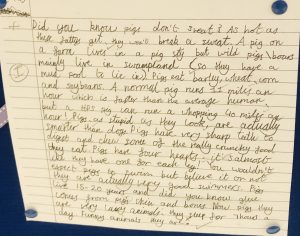 + Did you know pigs don't sweat? As hot as
these fattys get they won't break a sweat. A pig on
a farm lives in a pig sty but wild pigs\boars
mainly live in swampland (so they have a
mud pool to lie in) Pigs eat barley, wheat, corn
and soybeans. A normal pig runs 11 miles an
hour which is faster than the average human
but a pig can run a whopping miles an
hour! Pigs as stupid as they look are actually
smarter than dogs. Pigs have very sharp teeth to
digest and chew some of the really crunchy food
they eat. Pigs have four hearts, it's almost
like they have one for each leg! You wouldn't
expect pigs to swim but believe it or not
they are actually very good swimmers. Pigs
live 15-20 years and did you know glue
comes from pigs skin and bones Now pigs they
are very lazy animals they sleep for hours a
day. Funny animals they are.
I